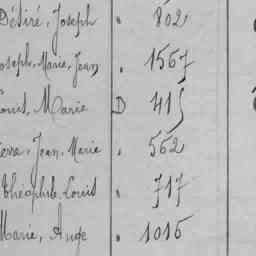 Désiré, Joseph " 802
Joseph, Marie, Jean " 1567
Louis, Marie D 415
Pierre, Jean, Marie " 562
Théophile, Louis " 717
Marie, Ange " 1016